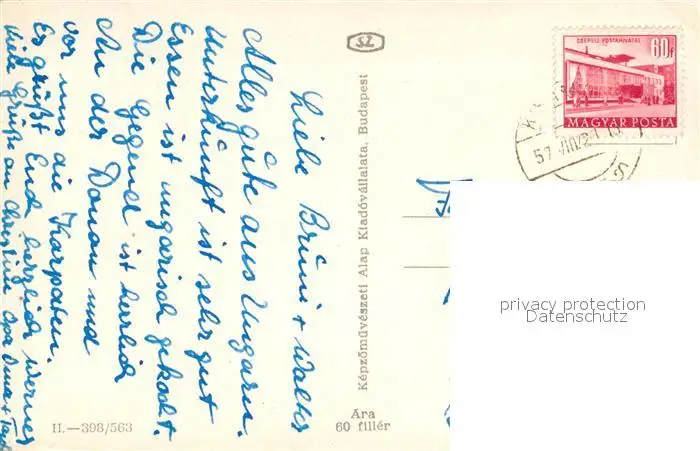 Liebe Bruni + Walter
Alles gute aus Ungarn.
Unterkunft ist sehr gut
Essen ist ungarisch gekocht.
Die Gegend ist herrlich
An der Donau und
vor uns die Karpaten.
Es grüßt Euch herzlich Werner
viele Grüße an Christine Opa Oma +
SZ
Képzőművészeti Alap Kiadóvállalata, Budapest
II.—398/563
Ára
60 fillér
CSEPELI POSTAHIVATAL
60f
MAGYAR POSTA
57 VIII 21
privacy protection
Datenschutz